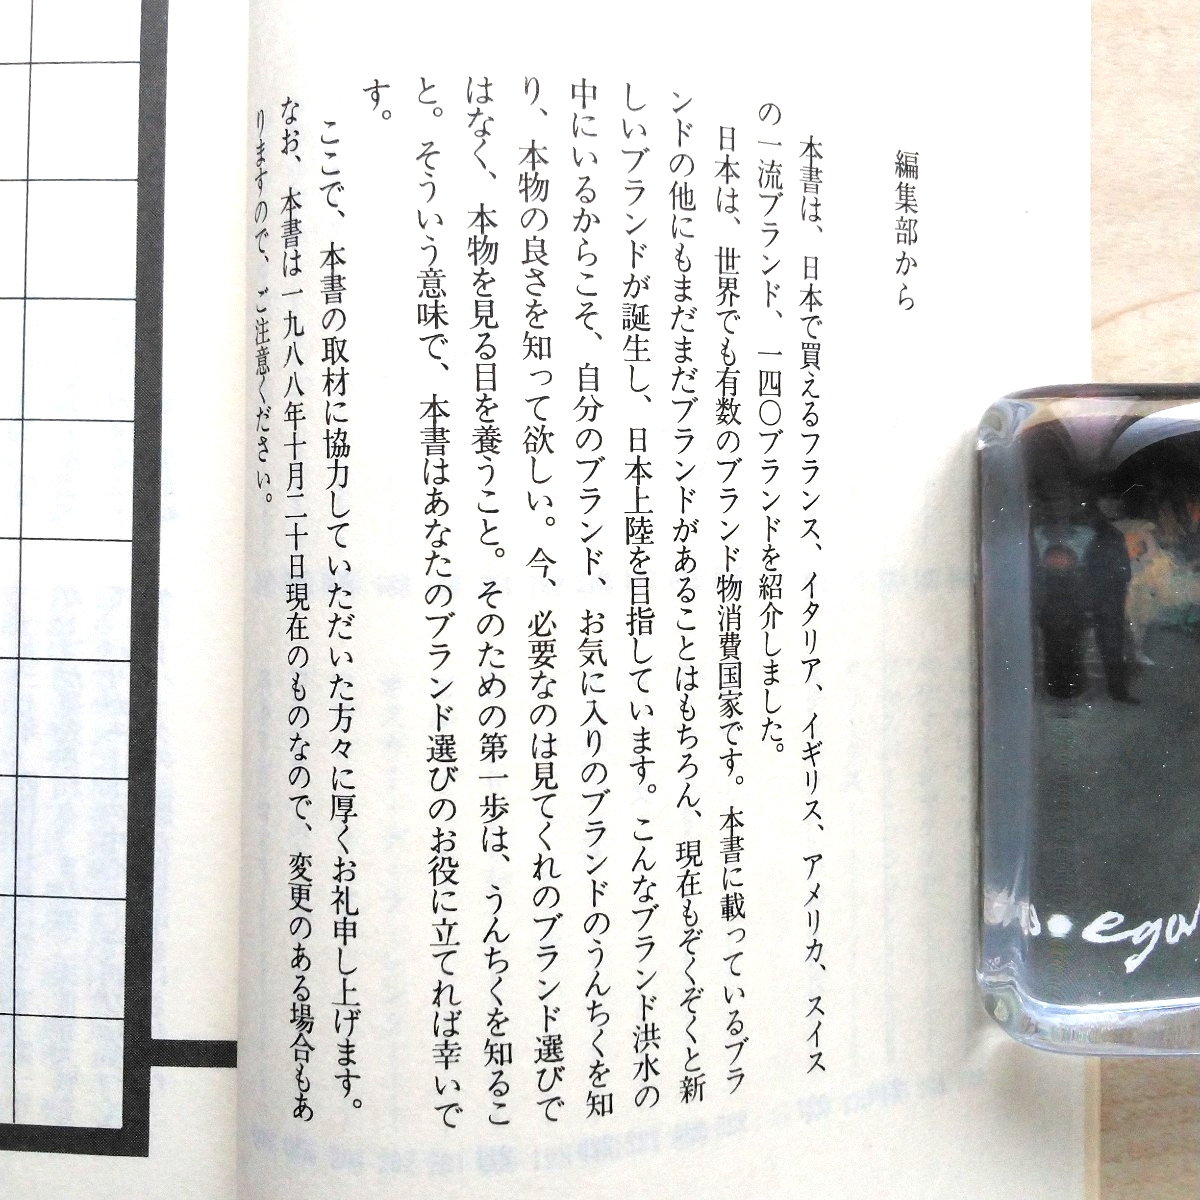 編集部から
本書は、日本で買えるフランス、イタリア、イギリス、アメリカ、スイス
の一流ブランド、一四〇ブランドを紹介しました。
日本は、世界でも有数のブランド物消費国家です。本書に載っているブラ
ンドの他にもまだまだブランドがあることはもちろん、現在もぞくぞくと新
しいブランドが誕生し、日本上陸を目指しています。こんなブランド洪水の
中にいるからこそ、自分のブランド、お気に入りのブランドのうんちくを知
り、本物の良さを知って欲しい。今、必要なのは見てくれのブランド選びで
はなく、本物を見る目を養うこと。そのための第一歩は、うんちくを知るこ
と。そういう意味で、本書はあなたのブランド選びのお役に立てれば幸いで
す。
ここで、本書の取材に協力していただいた方々に厚くお礼申し上げます。
なお、本書は一九八八年十月二十日現在のものなので、変更のある場合もあ
りますので、ご注意ください。